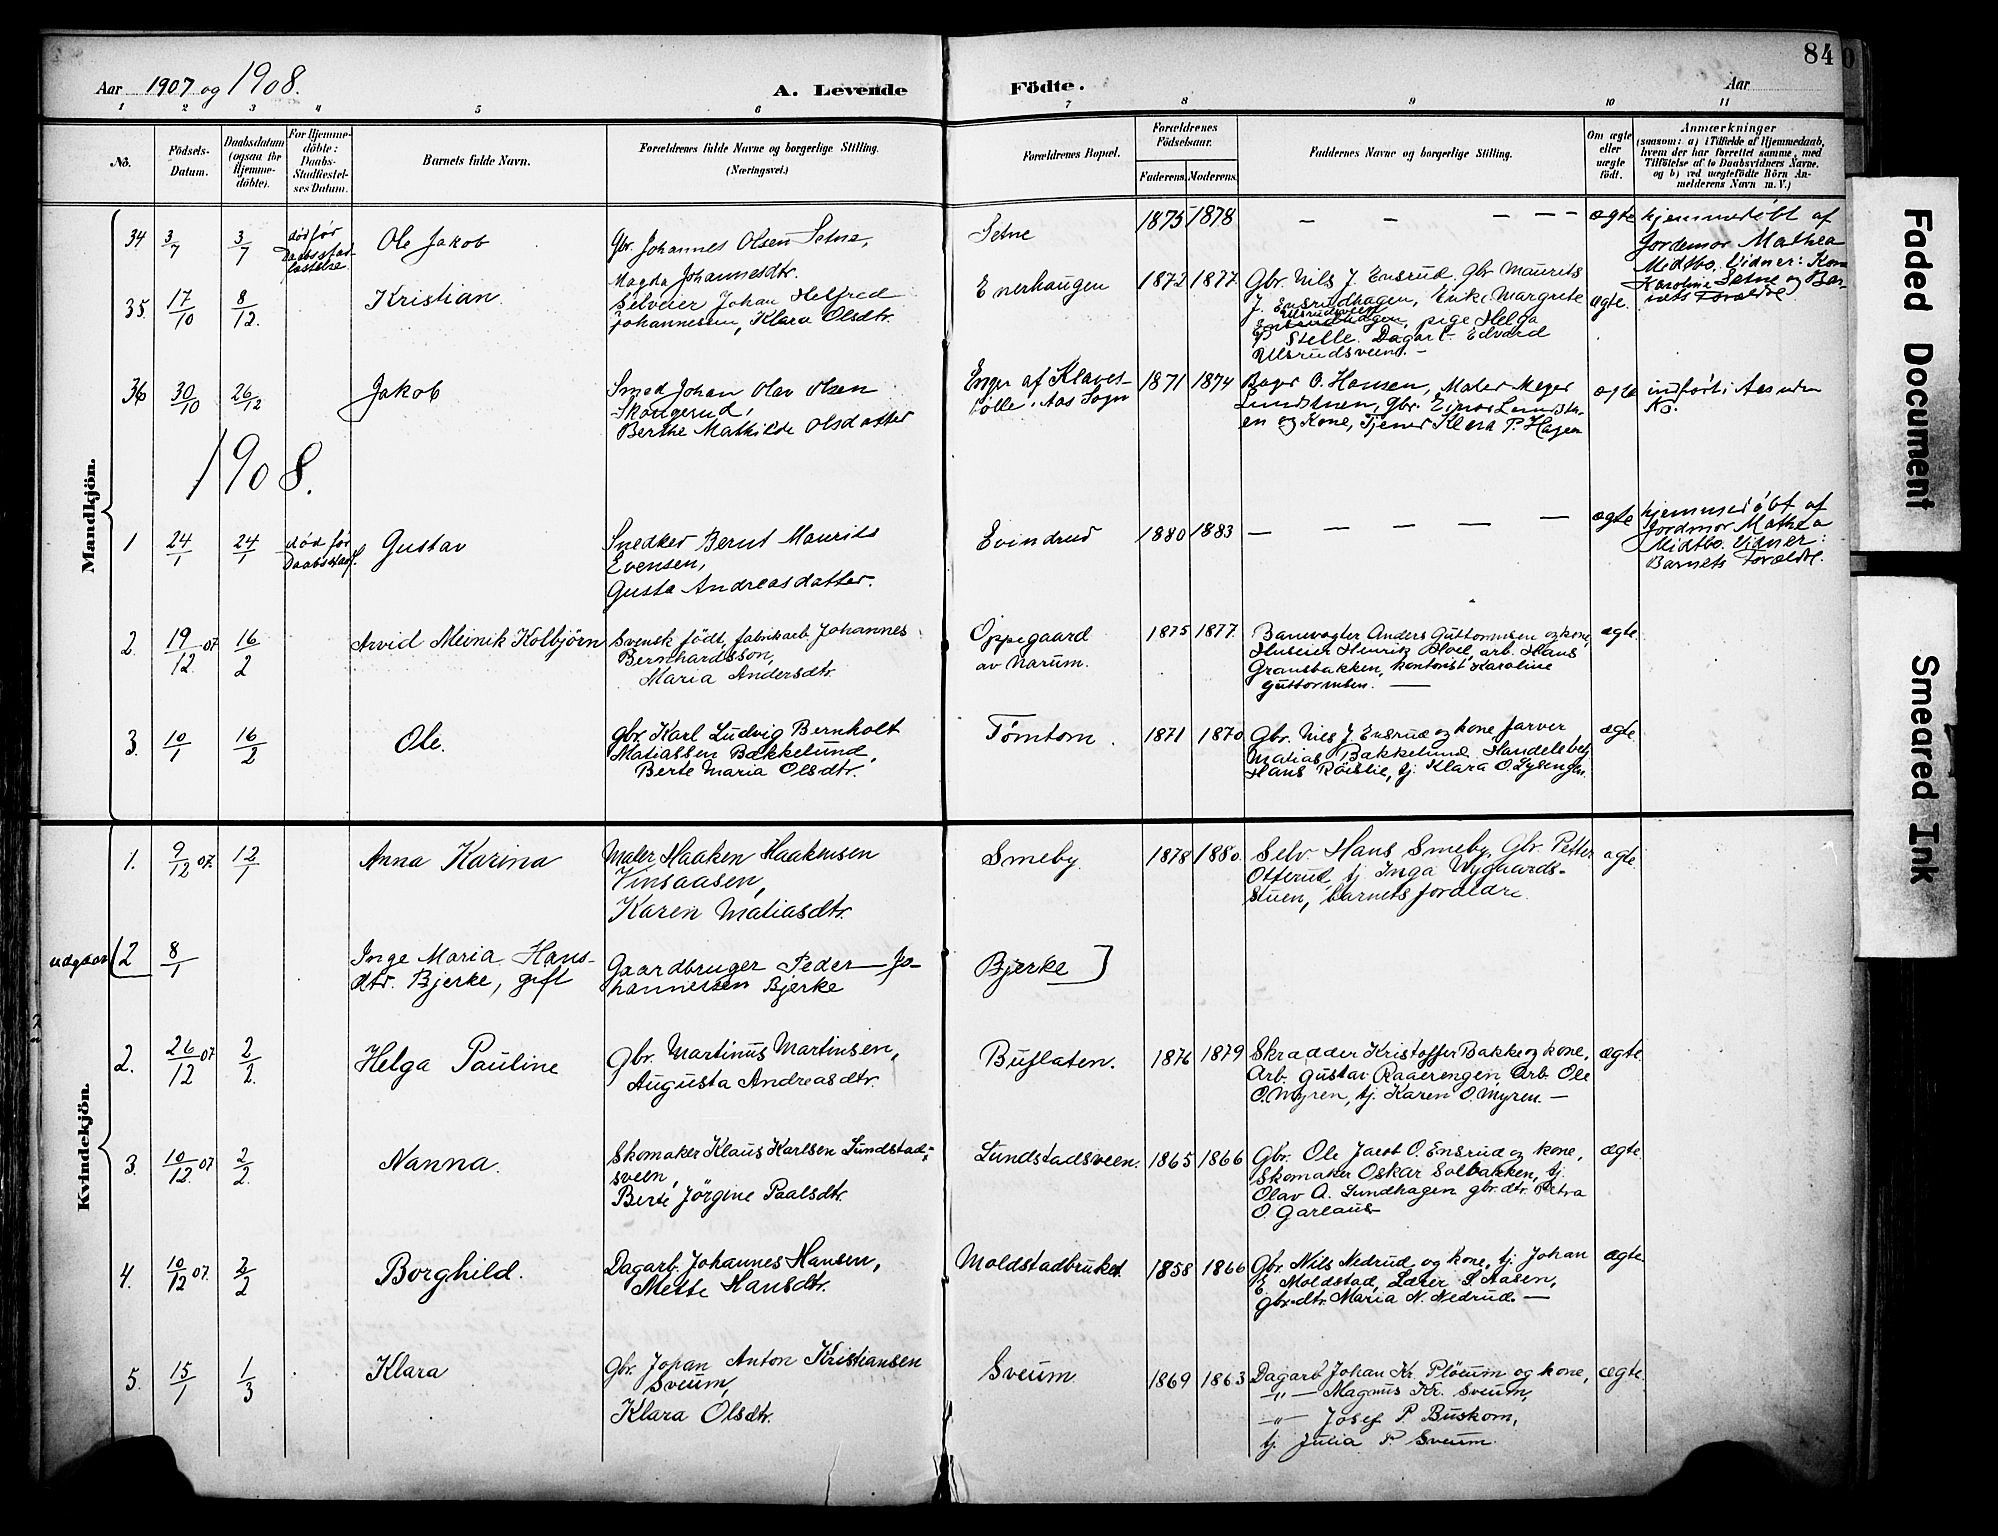 84
Aar 1907 og 1908.
A. Levende
Födte.
Aar
1 2 3 4 5 6 7 8 9 10 11
No.
Födsels-
Datum.
Daabsdatum
(ogsaa for
Hjemme-
döbte).
For Hjemme-
döbte:
Daabs-
Stadfæstel-
ses Datum.
Barnets fulde Navn.
Forældrenes fulde Navne og borgerlige Stilling.
(Næringsvei.)
Forældrenes Bopæl.
Forældrenes
Födselsaar.
Faderens. Moderens.
Faddernes Navne og borgerlige Stilling.
Om ægte
eller
uægte
födt.
Anmærkninger
(saasom: a) i Tilfælde af Hjemmedaab,
hvem der har forrettet samme, med
Tilföielse af to Daabsvidners Navne,
og b) ved uægtefödte Börn An-
melderens Navn m. V.)
Mandkjön.
34 3/7 3/7 død før
Daabsstad-
fæstelse
Ole Jakob
Gbr. Johannes Olsen Setne,
Magda Johannesdtr.
Setne
1875 1878
— — — — —
ægte
hjemmedøbt af
Jordemor Mathea
Midtbo. Vidner: Kone
Karoline Setne og Bar-
nets Forældre
35. 17/10 8/12.
Kristian
Selveier Johan Helfred
Johannessen, Klara Olsdtr.
Enerhaugen
1872 1877.
Gbr. Nils J. Ensrud, gbr Maurits
J. Ensrudhagen, Enke Margrete
Ulsrudsveen
Ensrudhagen, pige Helga
P Stelle. Dagarb. Edvard
Ulsrudsveen. —
ægte.
36 30/10 26/12
Jakob
Smed Johan Olav Olsen
Skongerud,
Berthe Mathilde Olsdatter
Enger af Klaves-
tølle. Aas Sogn
1871 1874
Bager O. Hansen, Maler Meyer
Lundstuen, gbr. Einar Lundstu-
en og Kone, Tjener Klara P. Hagen
ægte
indført i Aas uden
No.
1908.
1 24/1 24/1 død før
Daabsstadf.
Gustav
Snedker Bernt Maurits
Evensen,
Gusta Andreasdatter.
Evindrud
1880 1883
— — — — — —
ægte
hjemmedøbt af
Jordmor Mathea
Midtbo. Vidner:
Barnets Forældre.
2. 19/12 07. 16/2
Arvid Meinik Kolbjörn
Svensk født, fabrikarb. Johannes
Bernhardsson,
Maria Andersdtr.
Oppegaard
av Narum.
1875 1877.
Banevogter Anders Guttormsen og kone,
Huseier Henrik Hvel, arb. Hans
Gransbakken, kontorist Karoline
Guttormsen. —
ægte
3. 10/1 16/2
Ole.
gbr. Karl Ludvig Bernholt
Matiassen Bakkelund,
Berte Maria Olsdtr.
Tömtom.
1871 1870
Gbr. Nils J. Ensrud og kone, farver
Matias Bakkelund, Handelsbetj
Hans Röislie, tj. Klara O. Lysengen.
ægte
Kvindekjön.
1. 9/12 07. 12/1
Anna Karina
Maler Haaken Haakensen
Vinsaasen,
Karen Matiasdtr.
Smeby
1878 1880.
Selv. Hans Smeby, Gbr. Petter
Otterud tj. Inga Nygaards-
stuen, barnets foraldre.
ægte.
udgaar (2 8/1
Inge Maria Hans-
dtr. Bjerke, gift
Gaardbruger Peder Jo-
hannessen Bjerke
Bjerke
2. 26/12 07 2/2.
Helga Pauline
Gbr. Martinus Martinsen,
Augusta Andreasdtr.
Buflaten.
1876 1879
Skradder Kristoffer Bakke og kone,
Arb. Gustav Raaerengen, arb. Ole
O. Myren, tj. Karen O. Myren. —
ægte.
3. 10/12 07 2/2.
Nanna.
Skomaker Klaus Karlsen Lundstad-
sveen,
Berte Jörgine Paalsdtr.
Lundstadsveen.
1865 1866
Gbr. Ole Jacob O. Ensrud og kone,
Skomaker Oskar Solbakken, tj.
Olav A. Lundhagen gbr.dtr. Petra
O. Garlaus
ægte.
4. 10/12 07. 2/2
Borghild.
Dagarb. Johannes Hansen,
Mette Hansdtr.
Moldstadbruket.
1858 1866
Gbr. Nils Nedrud og kone, tj. Johan
E. Moldstad, Lærer S. Aasen,
gbr.dtr. Maria N. Nedrud. —
ægte.
5. 15/1 1/3
Klara
Gbr. Johan Anton Kristiansen
Sveum,
Klara Olsdtr.
Sveum
1869 1863
Dagarb. Johan Kr. Plöeum og kone,
—„— Magnus Kr. Sveum,
—„— Josef P. Buskom,
tj. Julia P. Sveum.
ægte.
Faded Document
Smeared Ink